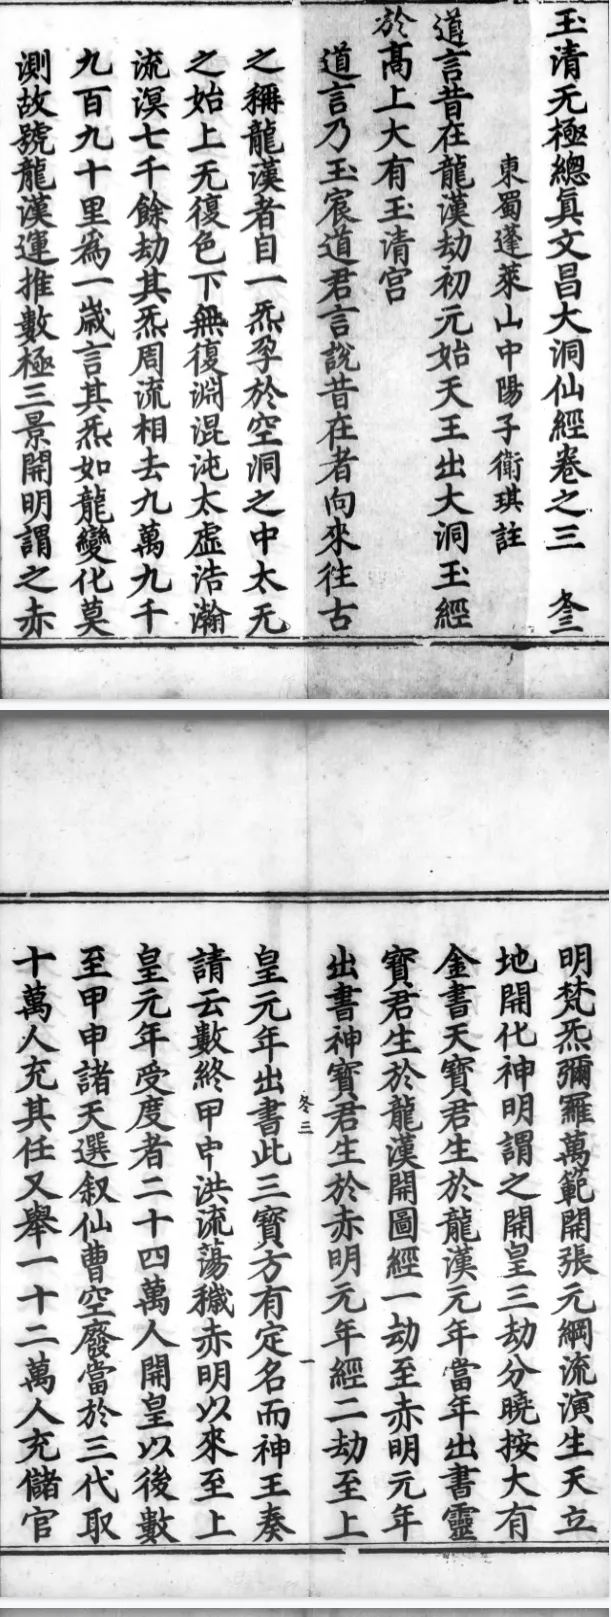 玉清无極總眞文昌大洞仙經卷之三 冬三
東蜀蓬萊山中陽子衛琪註
道言昔在龍漢劫初元始天王出大洞玉經
於高上大有玉清宫
道言乃玉宸道君言說昔在者向來徃古
之稱龍漢者自一炁孕於空洞之中太无
之始上无復色下無復淵混沌太虛浩瀚
流溟七千餘劫其炁周流相去九萬九千
九百九十里爲一歲言其炁如龍變化莫
測故號龍漢運推數極三景開明謂之赤
明梵炁彌羅萬範開張元綱流演生天立
地開化神明謂之開皇三劫分曉按大有
金書天寳君生於龍漢元年當年出書靈
寳君生於龍漢開圖經一劫至赤明元年
出書神寳君生於赤明元年經二劫至上
冬三 一
皇元年出書此三寳方有定名而神王奏
請云數終甲申洪流蕩穢赤明以來至上
皇元年受度者二十四萬人開皇以後數
至甲申諸天選叙仙曹空廢當於三代取
十萬人充其任又舉一十二萬人充儲官